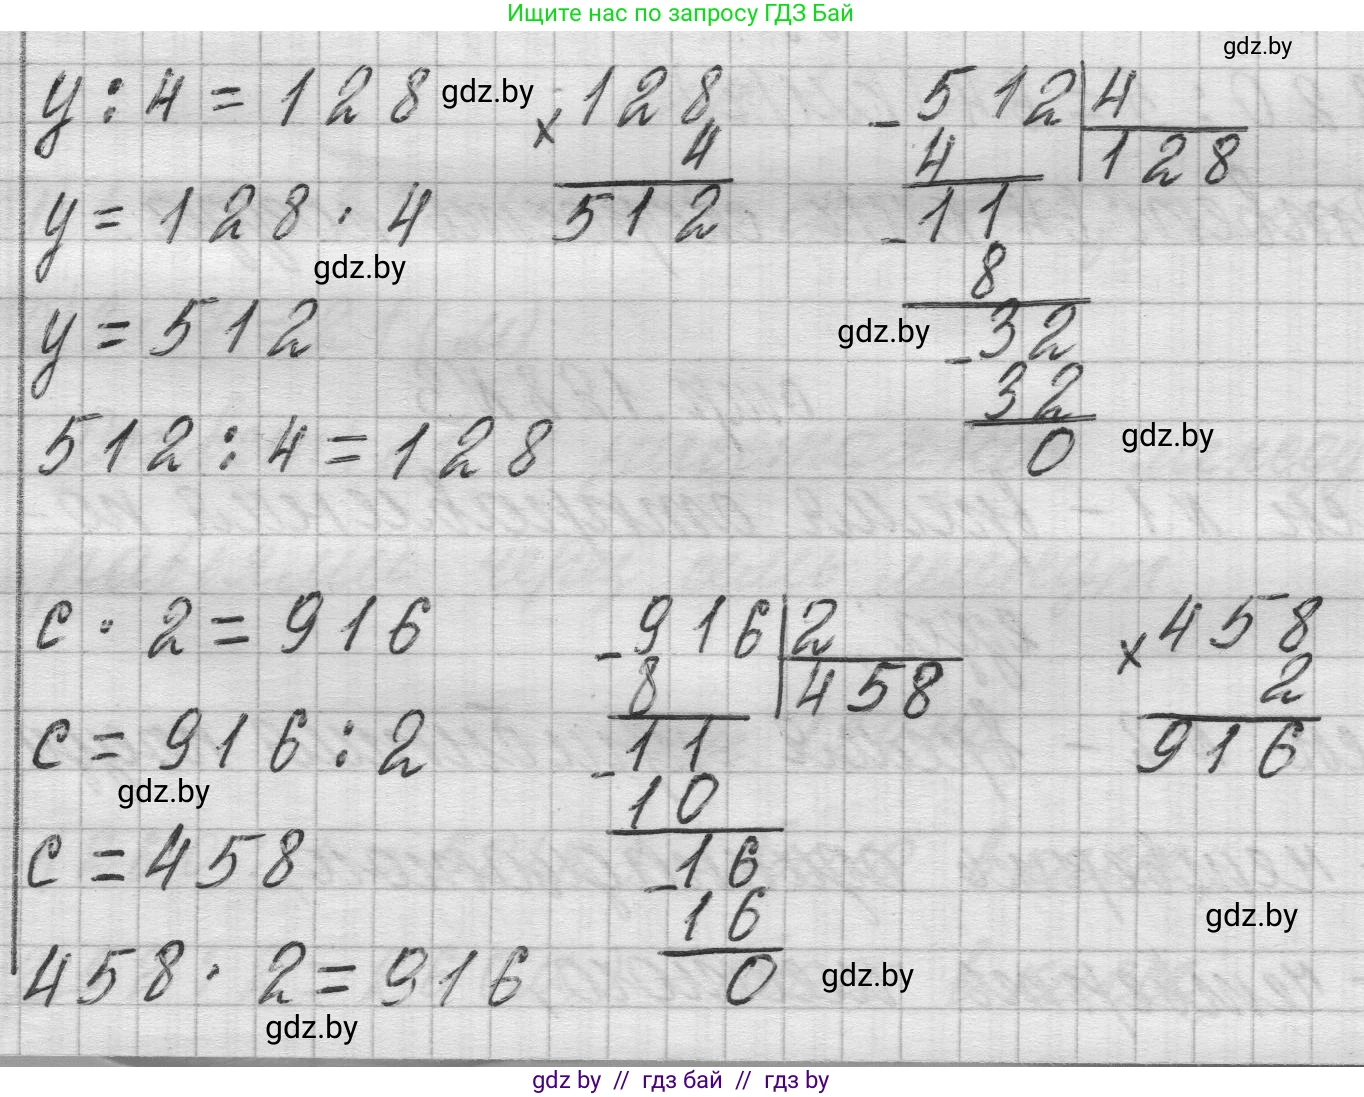 Ищите нас по запросу ГДЗ Бай
gdz.by
у : 4 = 128
gdz.by
× 128
4
512
- 512 | 4
4
128
- 11
8
- 32
32
0
у = 128 · 4
gdz.by
у = 512
gdz.by
512 : 4 = 128
gdz.by
с · 2 = 916
- 916 | 2
8
458
- 11
10
- 16
16
0
× 458
2
916
с = 916 : 2
gdz.by
с = 458
gdz.by
458 · 2 = 916
gdz.by
gdz.by
gdz by // гдз бай // гдз by